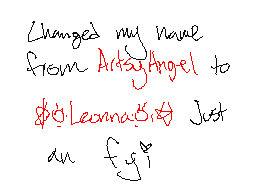 Changed my name
from ArtsyAngel to
Leonna Just
an fyi